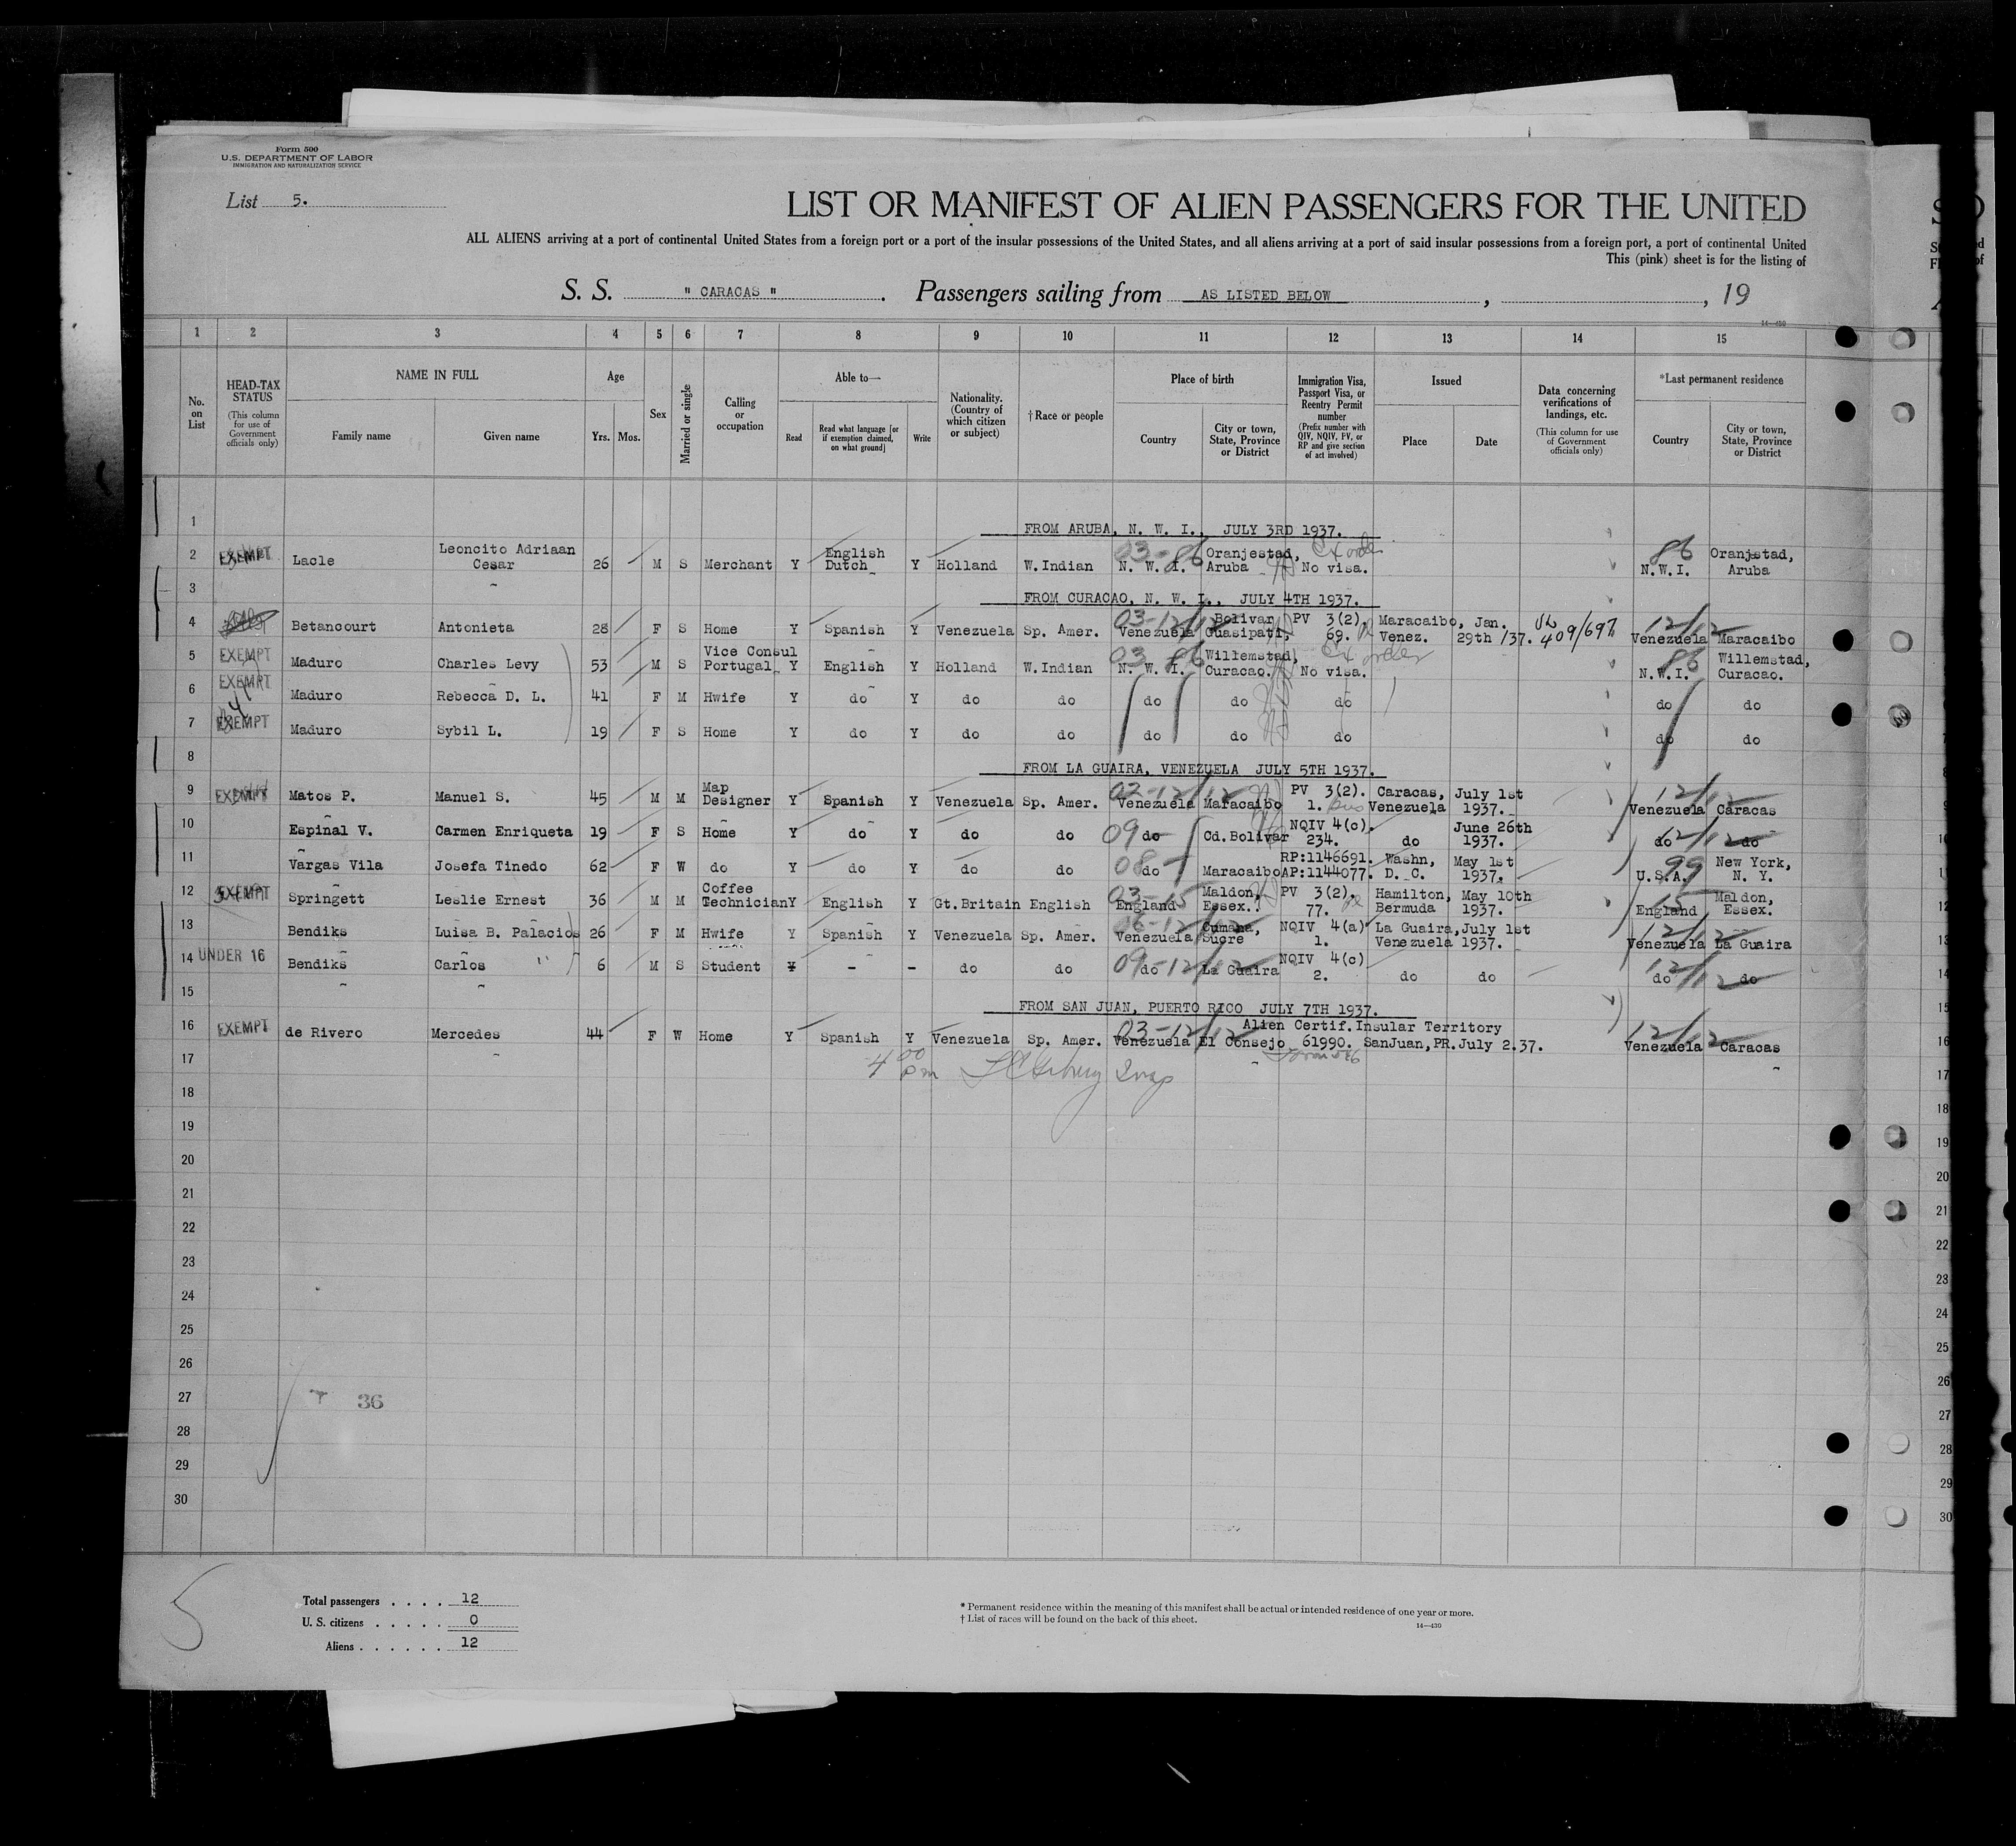 Form 500
U.S. DEPARTMENT OF LABOR
IMMIGRATION AND NATURALIZATION SERVICE
List 5.
LIST OR MANIFEST OF ALIEN PASSENGERS FOR THE UNITED
ALL ALIENS arriving at a port of continental United States from a foreign port or a port of the insular possessions of the United States, and all aliens arriving at a port of said insular possessions from a foreign port, a port of continental United
This (pink) sheet is for the listing of
S. S. " CARACAS ". Passengers sailing from AS LISTED BELOW , , 19
14—430
1 2 3 4 5 6 7 8 9 10 11 12 13 14 15
No. on List
HEAD-TAX STATUS (This column for use of Government officials only)
NAME IN FULL Family name Given name
Age Yrs. Mos.
Sex
Married or single
Calling or occupation
Able to— Read Read what language [or if exemption claimed, on what ground] Write
Nationality. (Country of which citizen or subject)
† Race or people
Place of birth Country City or town, State, Province or District
Immigration Visa, Passport Visa, or Reentry Permit number (Prefix number with QIV, NQIV, PV, or RP and give section of act involved)
Issued Place Date
Data concerning verifications of landings, etc. (This column for use of Government officials only)
*Last permanent residence Country City or town, State, Province or District
1 FROM ARUBA, N. W. I., JULY 3RD 1937.
2 EXEMPT Lacle Leoncito Adriaan Cesar 26 M S Merchant Y English Dutch Y Holland W.Indian 03-86 N. W. I. Oranjestad, Aruba Ex order No visa. 86 N.W.I. Oranjstad, Aruba
3 FROM CURACAO, N. W. I., JULY 4TH 1937.
4 Betancourt Antonieta 28 F S Home Y Spanish Y Venezuela Sp. Amer. 03-12/12 Venezuela Bolivar Guasipati, PV 3(2), 69. Maracaibo, Venez. Jan. 29th /37. 409/697 12/12 Venezuela Maracaibo
5 EXEMPT Maduro Charles Levy 53 M S Vice Consul Portugal Y English Y Holland W.Indian 03 86 N. W. I. Willemstad, Curacao. Ex order No visa. 86 N.W.I. Willemstad, Curacao.
6 EXEMPT Maduro Rebecca D. L. 41 F M Hwife Y do Y do do do do do do do
7 EXEMPT Maduro Sybil L. 19 F S Home Y do Y do do do do do do do
8 FROM LA GUAIRA, VENEZUELA JULY 5TH 1937.
9 EXEMPT Matos P. Manuel S. 45 M M Map Designer Y Spanish Y Venezuela Sp. Amer. 03-12/12 Venezuela Maracaibo PV 3(2). 1. Caracas, Venezuela July 1st 1937. 12/12 Venezuela Caracas
10 Espinal V. Carmen Enriqueta 19 F S Home Y do Y do do 09 do Cd.Bolivar NQIV 4(c). 234. do June 26th 1937. 12/12 do do
11 Vargas Vila Josefa Tinedo 62 F W do Y do Y do do 08 do Maracaibo RP:1146691. AP:1144077. Washn, D. C. May 1st 1937. 99 U.S.A. New York, N. Y.
12 EXEMPT Springett Leslie Ernest 36 M M Coffee Technician Y English Y Gt.Britain English 03-15 England Maldon, Essex. PV 3(2). 77. Hamilton, Bermuda May 10th 1937. 15 England Maldon, Essex.
13 Bendiks Luisa B. Palacios 26 F M Hwife Y Spanish Y Venezuela Sp. Amer. 06-12/12 Venezuela Cumana, Sucre NQIV 4(a) 1. La Guaira, Venezuela July 1st 1937. 12/12 Venezuela La Guaira
14 UNDER 16 Bendiks Carlos " 6 M S Student Y - - do do 09 do-12/12 La Guaira NQIV 4(c) 2. do do 12/12 do do
15 FROM SAN JUAN, PUERTO RICO JULY 7TH 1937.
16 EXEMPT de Rivero Mercedes 44 F W Home Y Spanish Y Venezuela Sp. Amer. 03-12/12 Venezuela El Consejo Alien Certif.Insular Territory 61990. SanJuan,PR.July 2.37. 12/12 Venezuela Caracas
17 4 00 pm
18
19
20
21
22
23
24
25
26
27 36
28
29
30
5
Total passengers . . . . 12
U. S. citizens . . . . . 0
Aliens . . . . . . 12
* Permanent residence within the meaning of this manifest shall be actual or intended residence of one year or more.
† List of races will be found on the back of this sheet.
14—430